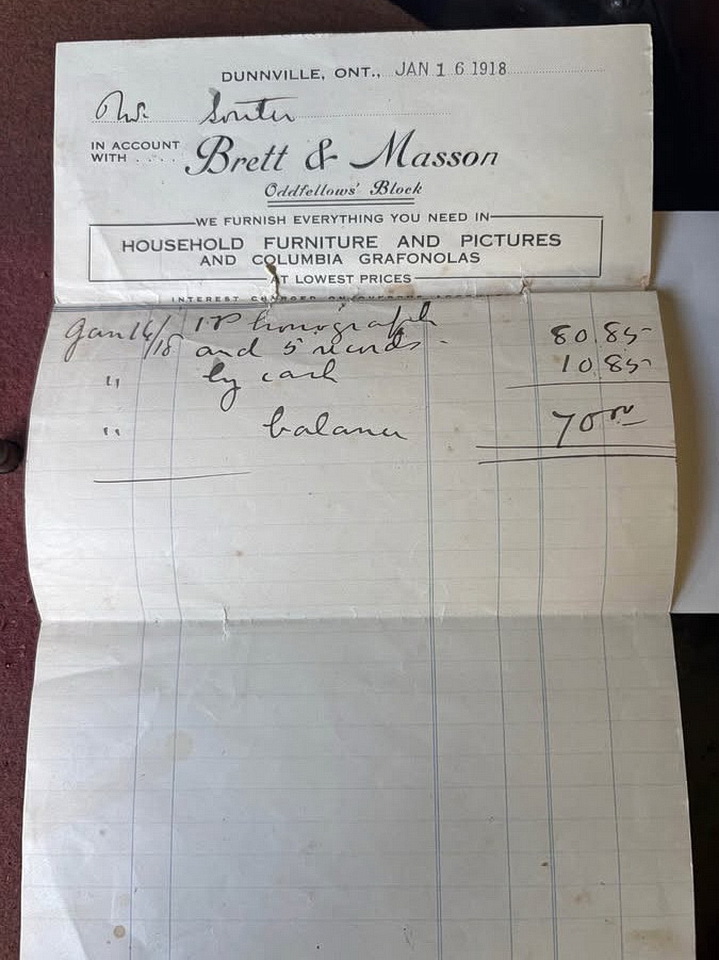 DUNNVILLE, ONT., JAN 16 1918
Mr. Souter
IN ACCOUNT
WITH . . . . Brett & Masson
Oddfellows' Block
WE FURNISH EVERYTHING YOU NEED IN
HOUSEHOLD FURNITURE AND PICTURES
AND COLUMBIA GRAFONOLAS
AT LOWEST PRICES
INTEREST CHARGED ON OVERDUE ACCOUNTS
Jan 16/18 1 Phonograph
and 5 records. 80.85
" by cash 10.85
" balance 70.00